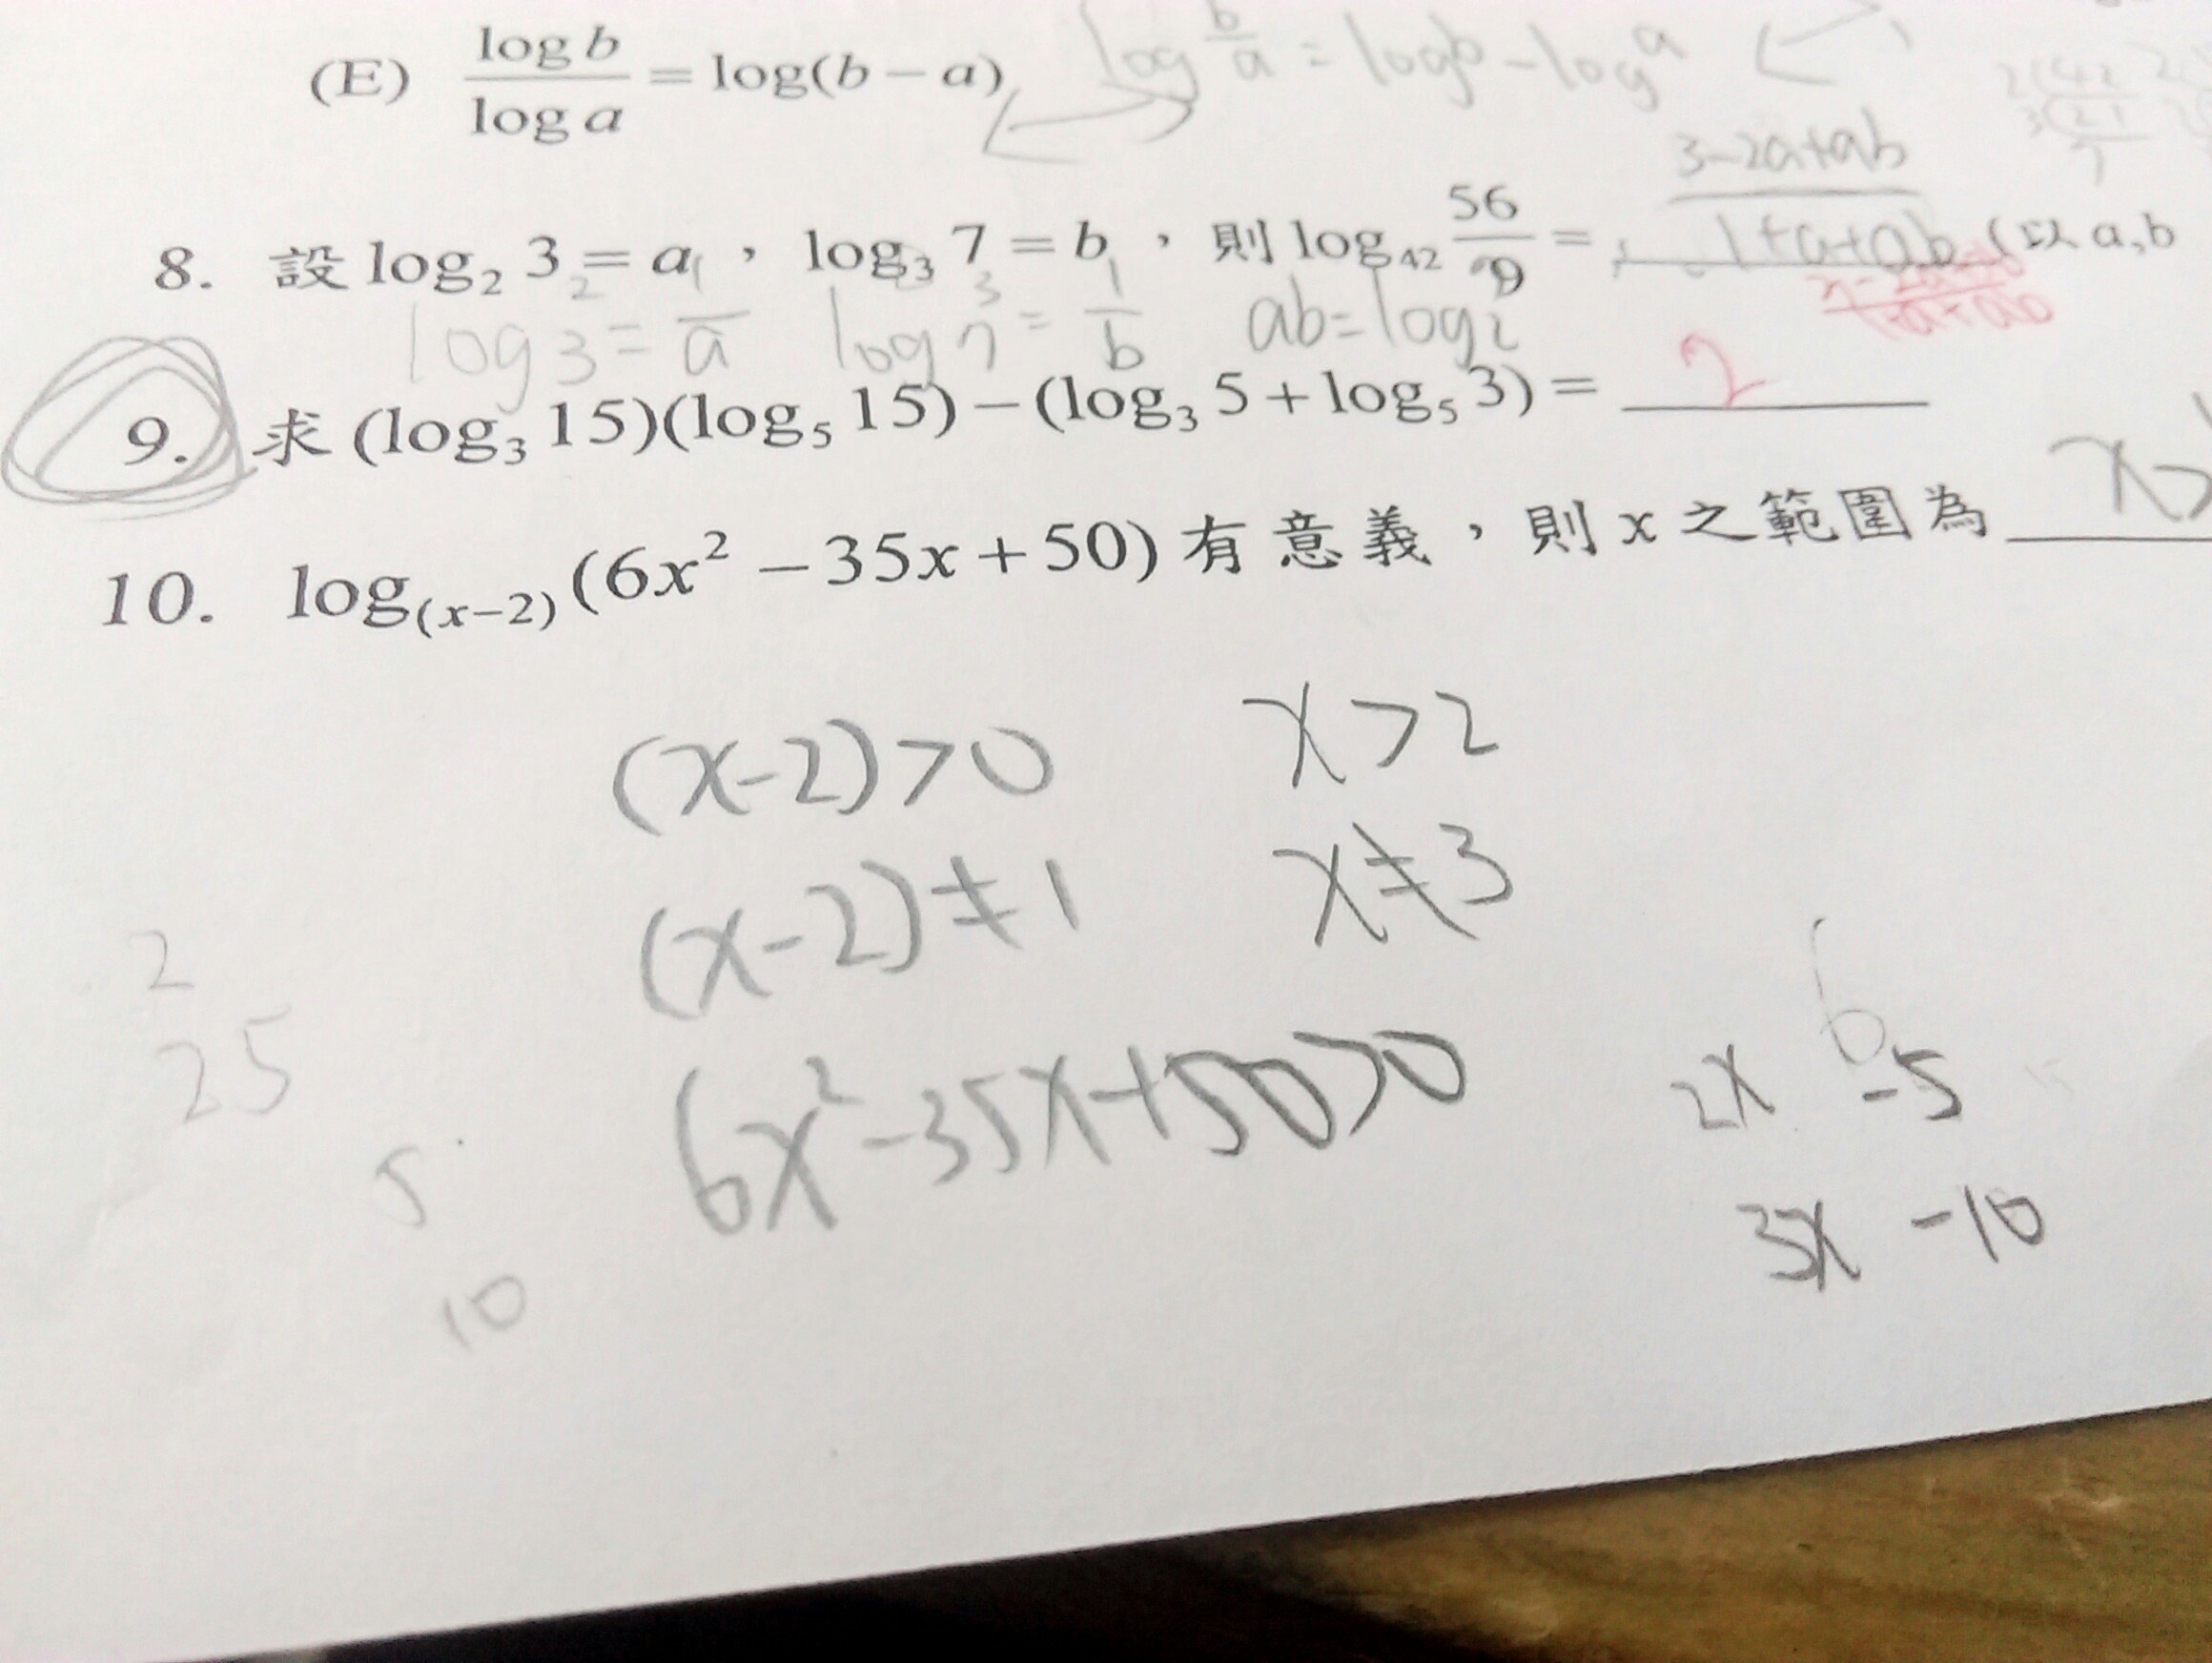 (E) log b / log a = log(b − a) log b/a = log b − log a
3−2a+ab
8. 設 log₂ 3 = a , log₃ 7 = b , 則 log₄₂ 56/9 = 1+a+ab (以 a,b
log₃ 2 = 1/a log₇ 3 = 1/b ab = log₂
9. 求 (log₃ 15)(log₅ 15) − (log₃ 5 + log₅ 3) = 2
10. log₍ₓ₋₂₎ (6x² − 35x + 50) 有意義,則 x 之範圍為 x>
(x-2)>0 x>2
(x-2)≠1 x≠3
2
25
6
6x²-35x+50>0 2x -5
5
3x -10
10